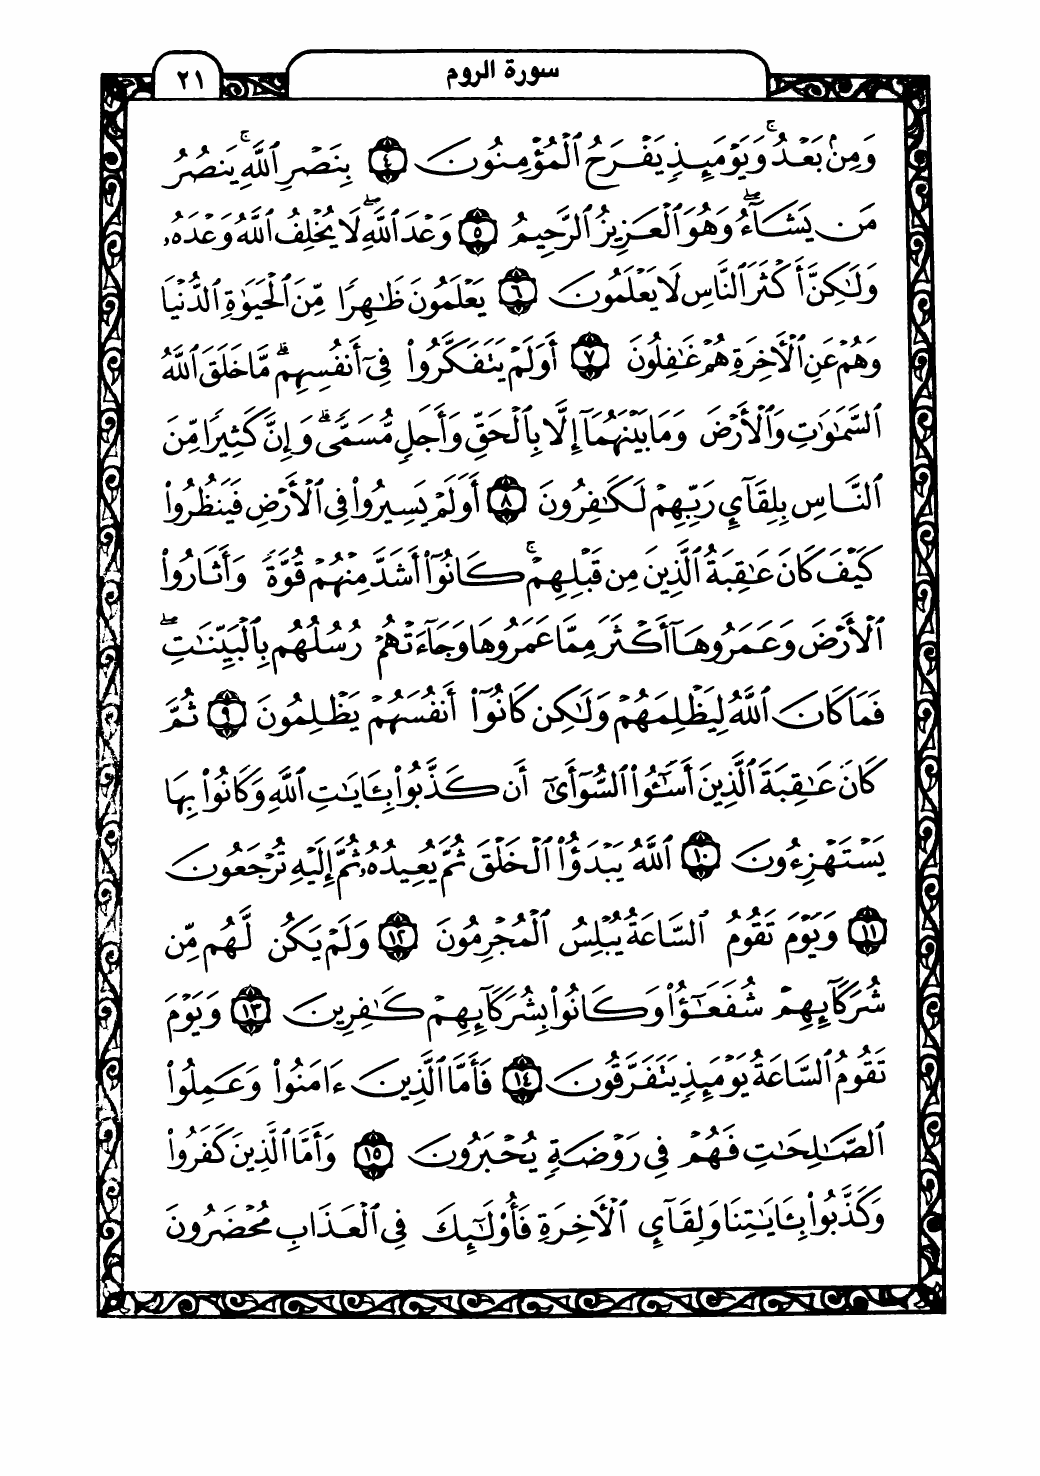 سورة الروم
٢١
وَمِنۢ بَعۡدُۚ وَيَوۡمَئِذٖ يَفۡرَحُ ٱلۡمُؤۡمِنُونَ ٤ بِنَصۡرِ ٱللَّهِۚ يَنصُرُ
مَن يَشَآءُۖ وَهُوَ ٱلۡعَزِيزُ ٱلرَّحِيمُ ٥ وَعۡدَ ٱللَّهِۖ لَا يُخۡلِفُ ٱللَّهُ وَعۡدَهُۥ
وَلَٰكِنَّ أَكۡثَرَ ٱلنَّاسِ لَا يَعۡلَمُونَ ٦ يَعۡلَمُونَ ظَٰهِرٗا مِّنَ ٱلۡحَيَوٰةِ ٱلدُّنۡيَا
وَهُمۡ عَنِ ٱلۡأٓخِرَةِ هُمۡ غَٰفِلُونَ ٧ أَوَلَمۡ يَتَفَكَّرُواْ فِيٓ أَنفُسِهِمۗ مَّا خَلَقَ ٱللَّهُ
ٱلسَّمَٰوَٰتِ وَٱلۡأَرۡضَ وَمَا بَيۡنَهُمَآ إِلَّا بِٱلۡحَقِّ وَأَجَلٖ مُّسَمّٗىۗ وَإِنَّ كَثِيرٗا مِّنَ
ٱلنَّاسِ بِلِقَآيِٕ رَبِّهِمۡ لَكَٰفِرُونَ ٨ أَوَلَمۡ يَسِيرُواْ فِي ٱلۡأَرۡضِ فَيَنظُرُواْ
كَيۡفَ كَانَ عَٰقِبَةُ ٱلَّذِينَ مِن قَبۡلِهِمۡۚ كَانُوٓاْ أَشَدَّ مِنۡهُمۡ قُوَّةٗ وَأَثَارُواْ
ٱلۡأَرۡضَ وَعَمَرُوهَآ أَكۡثَرَ مِمَّا عَمَرُوهَا وَجَآءَتۡهُمۡ رُسُلُهُم بِٱلۡبَيِّنَٰتِۖ
فَمَا كَانَ ٱللَّهُ لِيَظۡلِمَهُمۡ وَلَٰكِن كَانُوٓاْ أَنفُسَهُمۡ يَظۡلِمُونَ ٩ ثُمَّ
كَانَ عَٰقِبَةَ ٱلَّذِينَ أَسَٰٓـُٔواْ ٱلسُّوٓأَىٰٓ أَن كَذَّبُواْ بِـَٔايَٰتِ ٱللَّهِ وَكَانُواْ بِهَا
يَسۡتَهۡزِءُونَ ١٠ ٱللَّهُ يَبۡدَؤُاْ ٱلۡخَلۡقَ ثُمَّ يُعِيدُهُۥ ثُمَّ إِلَيۡهِ تُرۡجَعُونَ
١١ وَيَوۡمَ تَقُومُ ٱلسَّاعَةُ يُبۡلِسُ ٱلۡمُجۡرِمُونَ ١٢ وَلَمۡ يَكُن لَّهُم مِّن
شُرَكَآئِهِمۡ شُفَعَٰٓؤُاْ وَكَانُواْ بِشُرَكَآئِهِمۡ كَٰفِرِينَ ١٣ وَيَوۡمَ
تَقُومُ ٱلسَّاعَةُ يَوۡمَئِذٖ يَتَفَرَّقُونَ ١٤ فَأَمَّا ٱلَّذِينَ ءَامَنُواْ وَعَمِلُواْ
ٱلصَّٰلِحَٰتِ فَهُمۡ فِي رَوۡضَةٖ يُحۡبَرُونَ ١٥ وَأَمَّا ٱلَّذِينَ كَفَرُواْ
وَكَذَّبُواْ بِـَٔايَٰتِنَا وَلِقَآيِٕ ٱلۡأٓخِرَةِ فَأُوْلَٰٓئِكَ فِي ٱلۡعَذَابِ مُحۡضَرُونَ